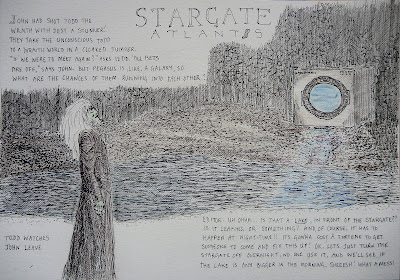 STARGATE
ATLANTIS
JOHN HAD SHOT TODD THE
WRAITH WITH JUST A STUNNER!
THEY TAKE THE UNCONSCIOUS TODD
TO A WRAITH WORLD IN A CLOAKED JUMPER.
"IF WE WERE TO MEET AGAIN?" ASKS TODD. "ALL BETS
ARE OFF," SAYS JOHN. BUT PEGASUS IS LIKE, A GALAXY, SO
WHAT ARE THE CHANCES OF THEM RUNNING INTO EACH OTHER?
TODD WATCHES
JOHN LEAVE
UH OHHH... IS THAT A LAKE, IN FRONT OF THE STARGATE??
IS IT LEAKING OR SOMETHING? AND OF COURSE, IT HAS TO
HAPPEN AT NIGHT-TIME!! IT'S GONNA COST A FORTUNE TO GET
SOMEONE TO COME AND FIX THIS UP! OK. LET'S JUST TURN THE
STARGATE OFF OVERNIGHT, NO ONE USE IT, AND WE'LL SEE IF
THE LAKE IS ANY BIGGER IN THE MORNING. SHEEESH! WHAT A MESS!